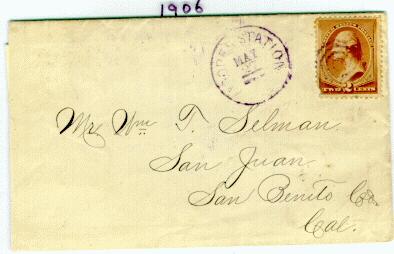 1906
STATION
MAY
TWO CENTS
Mr. Wm T. Selman.
San Juan.
San Benito Co.
Cal.